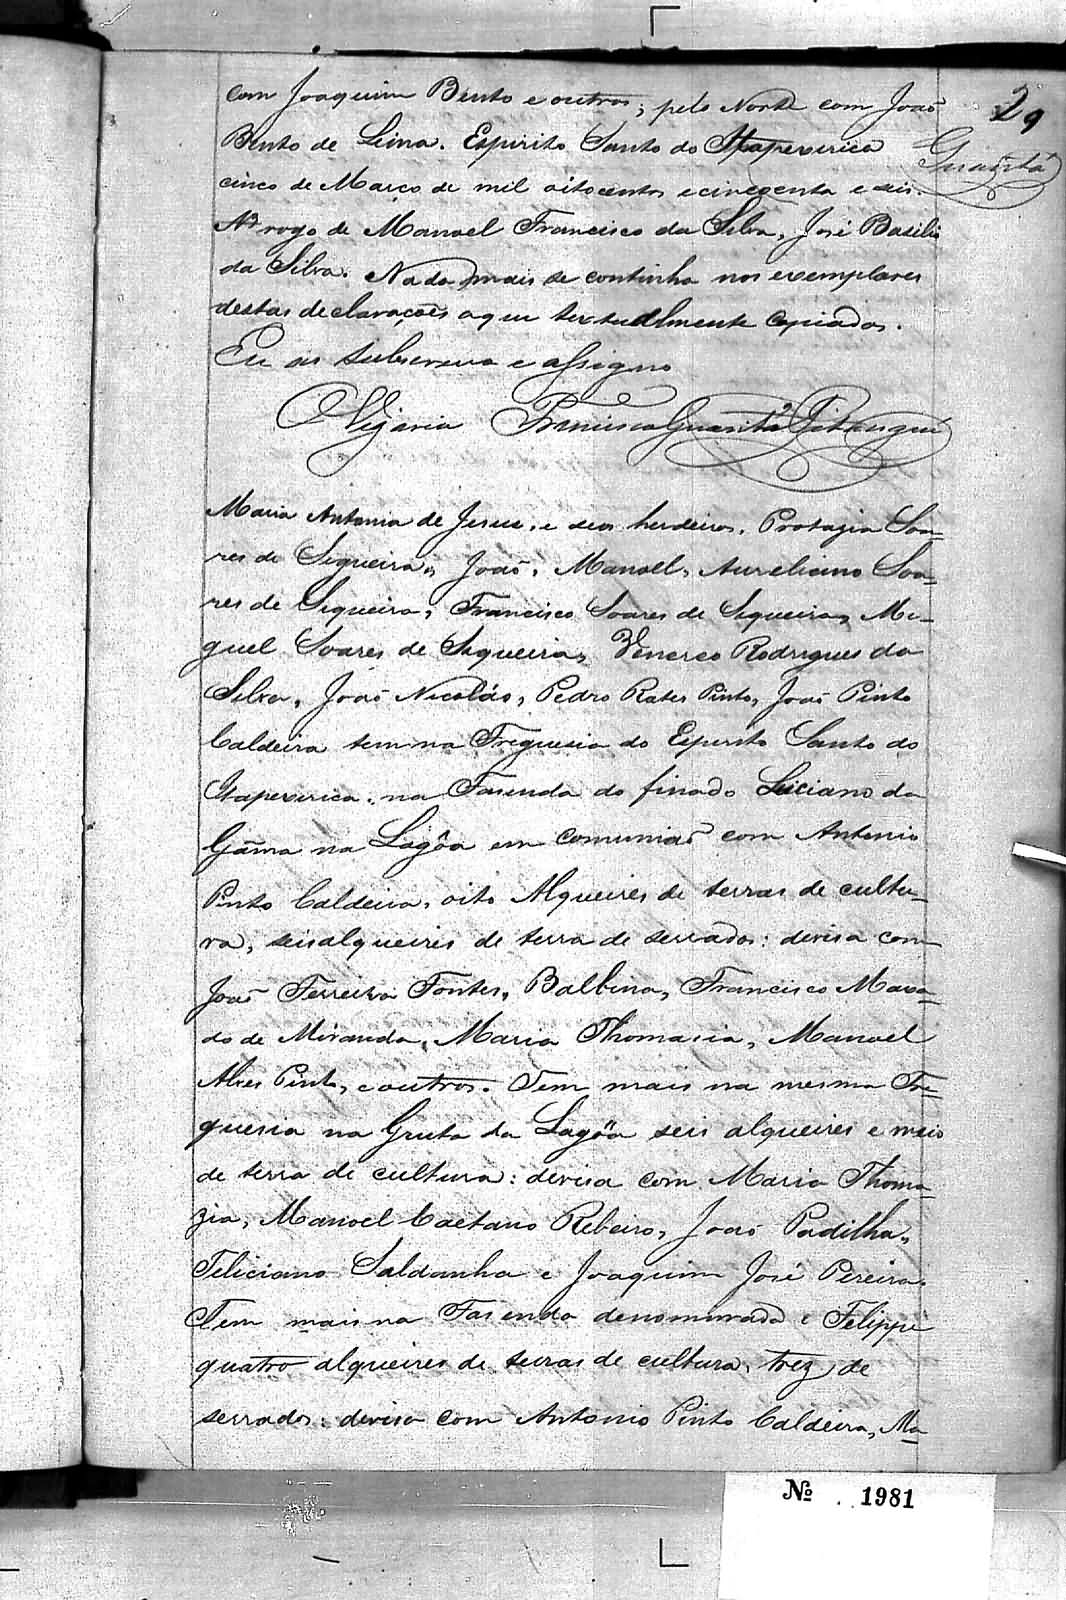 29
Guaritá
com Joaquim Bento e outros; pelo Norte com João
Bento de Lima. Espirito Santo do Itapexerica
cinco de Março de mil oitocentos e cincoenta e seis.
A rogo de Manoel Francisco da Silva, José Basilio
da Silva. Nada mais se continha nos exemplares
destas declarações aqui textualmente copiados.
Eu as subscrevo e assigno
Olegario Francisco Guaritá Pitangui
Maria Antonia de Jesus, e seos herdeiros, Protazio Soa-
res de Siqueira, João, Manoel, Aureliano Soa-
res de Siqueira, Francisco Soares de Siqueira, Mi-
guel Soares de Siqueira, Venereo Rodrigues da
Silva, João Nicoláo, Pedro Rates Pinto, João Pinto
Caldeira tem na Freguesia do Espirito Santo do
Itapexerica, na Fasenda do finado Luciano da
Gama na Lagôa em comunião com Antonio
Pinto Caldeira, oito Alqueires de terras de cultu-
ra, seis alqueires de terra de serrados: devisa com
João Ferreira Fontes, Balbina, Francisco Maxa-
do de Miranda, Maria Thomasia, Manoel
Alves Pinto, e outros. Tem mais na mesma Fre-
guesia na Gruta da Lagôa seis alqueires e meio
de terra de cultura: devisa com Maria Thoma-
zia, Manoel Caetano Ribeiro, João Padilha,
Feliciano Saldanha e Joaquim José Pereira.
Tem mais na Fasenda denominada e Felippe
quatro alqueires de terras de cultura, trez de
serrados: devisa com Antonio Pinto Caldeira, Ma-
Nº 1981